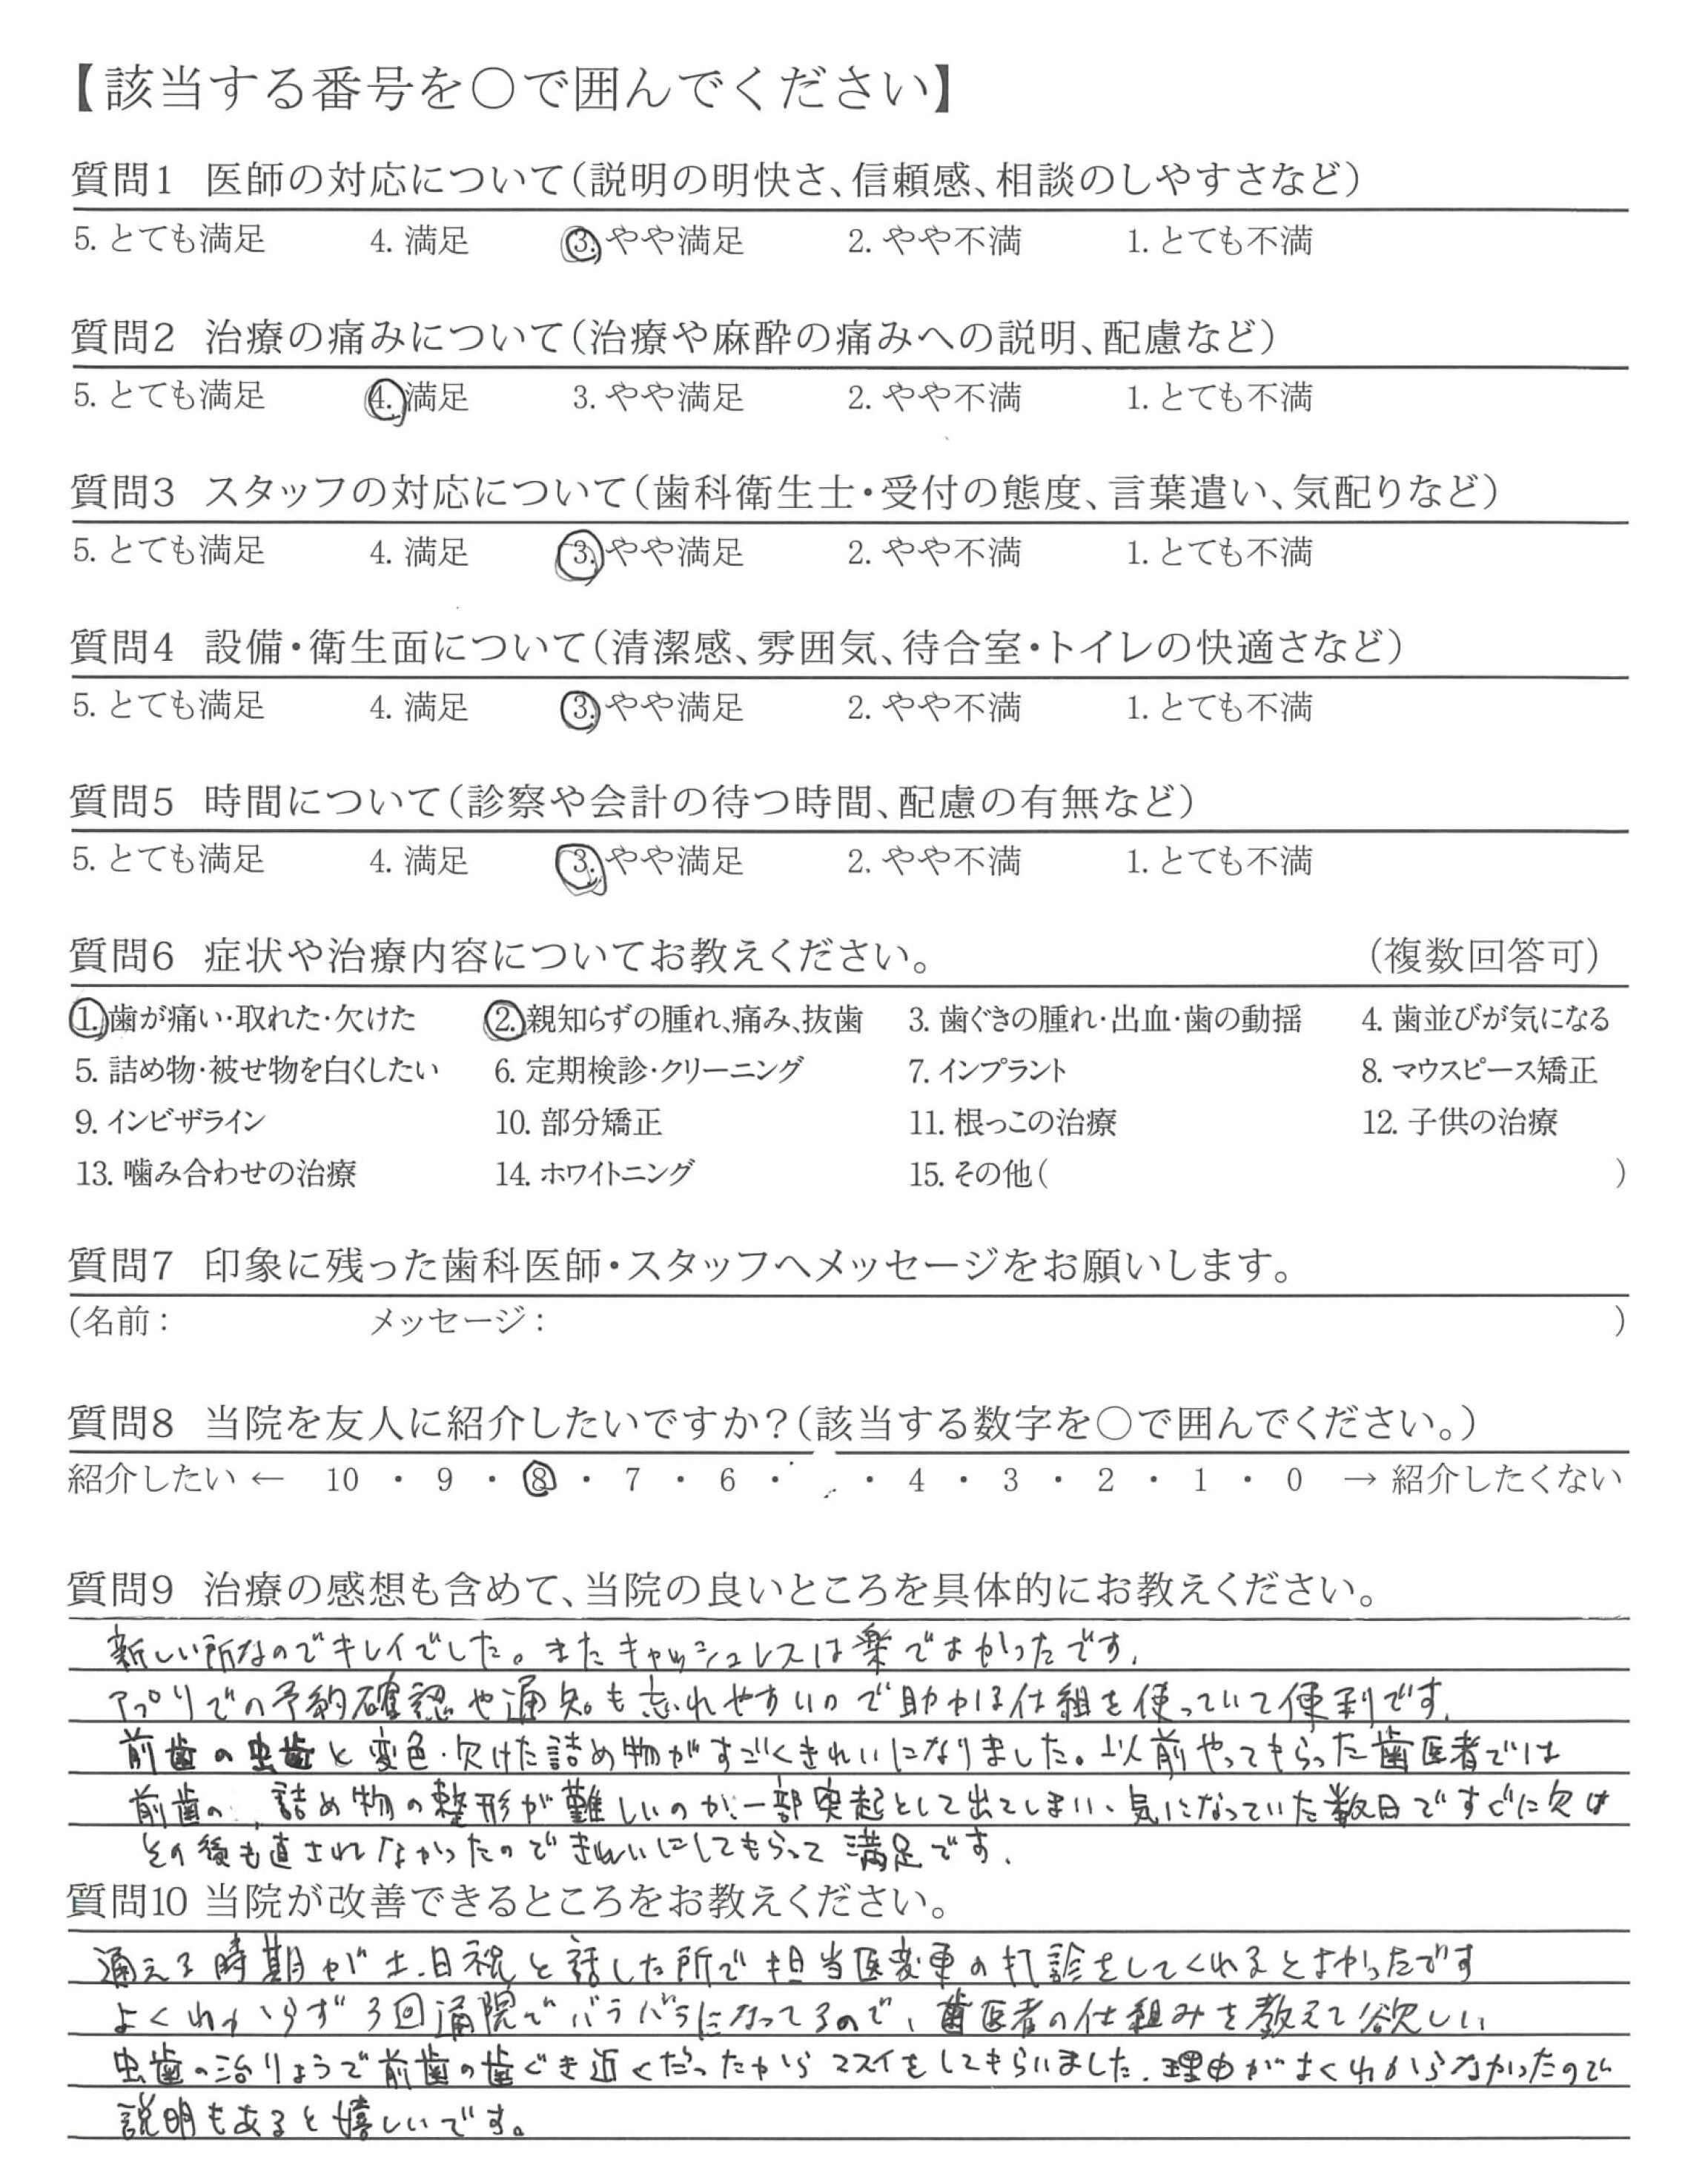 【該当する番号を○で囲んでください】
質問1 医師の対応について(説明の明快さ、信頼感、相談のしやすさなど)
5. とても満足 4. 満足 3. やや満足 2. やや不満 1. とても不満
質問2 治療の痛みについて(治療や麻酔の痛みへの説明、配慮など)
5. とても満足 4. 満足 3. やや満足 2. やや不満 1. とても不満
質問3 スタッフの対応について(歯科衛生士・受付の態度、言葉遣い、気配りなど)
5. とても満足 4. 満足 3. やや満足 2. やや不満 1. とても不満
質問4 設備・衛生面について(清潔感、雰囲気、待合室・トイレの快適さなど)
5. とても満足 4. 満足 3. やや満足 2. やや不満 1. とても不満
質問5 時間について(診察や会計の待つ時間、配慮の有無など)
5. とても満足 4. 満足 3. やや満足 2. やや不満 1. とても不満
質問6 症状や治療内容についてお教えください。 (複数回答可)
1. 歯が痛い・取れた・欠けた 2. 親知らずの腫れ、痛み、抜歯 3. 歯ぐきの腫れ・出血・歯の動揺 4. 歯並びが気になる
5. 詰め物・被せ物を白くしたい 6. 定期検診・クリーニング 7. インプラント 8. マウスピース矯正
9. インビザライン 10. 部分矯正 11. 根っこの治療 12. 子供の治療
13. 噛み合わせの治療 14. ホワイトニング 15. その他( )
質問7 印象に残った歯科医師・スタッフへメッセージをお願いします。
(名前: メッセージ: )
質問8 当院を友人に紹介したいですか?(該当する数字を○で囲んでください。)
紹介したい ← 10 ・ 9 ・ 8 ・ 7 ・ 6 ・ ・ 4 ・ 3 ・ 2 ・ 1 ・ 0 → 紹介したくない
質問9 治療の感想も含めて、当院の良いところを具体的にお教えください。
新しい所なのでキレイでした。またキャッシュレスは楽でよかったです.
アプリでの予約確認や通知も忘れやすいので助かる仕組を使っていて便利です.
前歯の虫歯と変色・欠けた詰め物がすごくきれいになりました。以前やってもらった歯医者では
前歯の 詰め物の整形が難しいのか、一部突起として出てしまい、気になっていた数日ですぐに欠け
その後も直されなかったのできれいにしてもらって満足です.
質問10 当院が改善できるところをお教えください。
通える時期が土.日祝と話した所で担当医変更の打診をしてくれるとよかったです
よくわからず3回通院でバラバラになってるので、歯医者の仕組みを教えて欲しい
虫歯の治りょうで前歯の歯ぐき近くだったからマスイをしてもらいました.理由がよくわからなかったので
説明もあると嬉しいです。